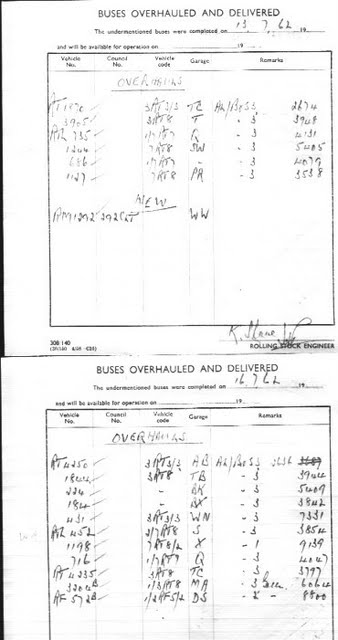 BUSES OVERHAULED AND DELIVERED
The undermentioned buses were completed on 13.7.62 19
and will be available for operation on 19
Vehicle No. Council No. Vehicle code Garage Remarks
OVERHAULS
3AT3/3 TC 2674
3905 3AT8 T - 3 3948
735 1/7AT7 Q - 3 4131
1244 7AT8 SW - 3 5405
686 1/7AT7 - - 3 4079
1127 7AT8 PR - 3 3538
NEW
WW
308/140
ROLLING STOCK ENGINEER
BUSES OVERHAULED AND DELIVERED
The undermentioned buses were completed on 16.7.62 19
and will be available for operation on 19
Vehicle No. Council No. Vehicle code Garage Remarks
OVERHAULS
4250 3AT3/3 AB 2636
1844 3AT8 TB - 3 3944
224 - BK - 3 5409
184 - BX - 3 3842
431 3AT3/3 WN - 3 7331
452 2/7AT8 S - 3 3854
1198 7AT8/2 X - 1 9139
716 1/7AT7 Q - 3 4047
4235 3AT8 TC - 3 3797
3204 1/3AT8 MA - 3 6064
572 1/2AF5/2 DS - 2 - 8800